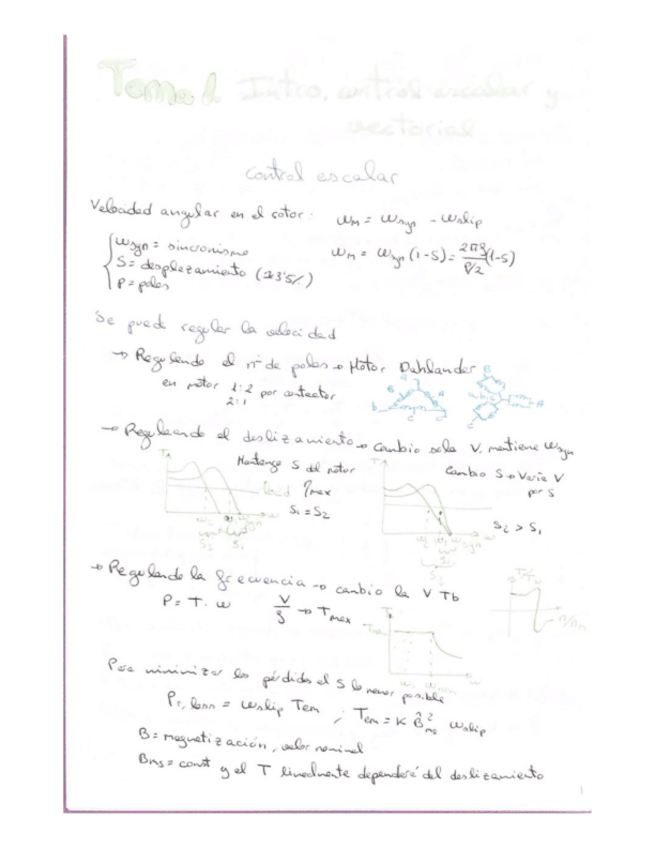 Tema 1 Intro, control escalar y
vectorial
control escalar
Velocidad angular en el rotor: ωm = ωsyn - ωslip
ωsyn = sincronismo
ωm = ωsyn (1-S) = 2πf/P/2 (1-S)
S = desplezamiento
P = polos
Se puede regular la velocidad
→ Regulando el nº de polos → Motor Dahlander
en motor 1:2 por contactor
2:1
→ Regulando el deslizamiento → cambio solo V, mantiene ωsyn
Mantengo S del rotor
Cambio S → Varía V
por S
load
ηmax
S1 = S2
S2 > S1
→ Regulando la frecuencia → cambio la V Tb
P = T · ω V/f → Tmax
Para minimizar las pérdidas el S lo menor posible
Pr,loss = ωslip Tem ; Tem = K B̂²ms ωslip
B = magnetización, valor nominal
Bms = const y el T linealmente dependerá del deslizamiento